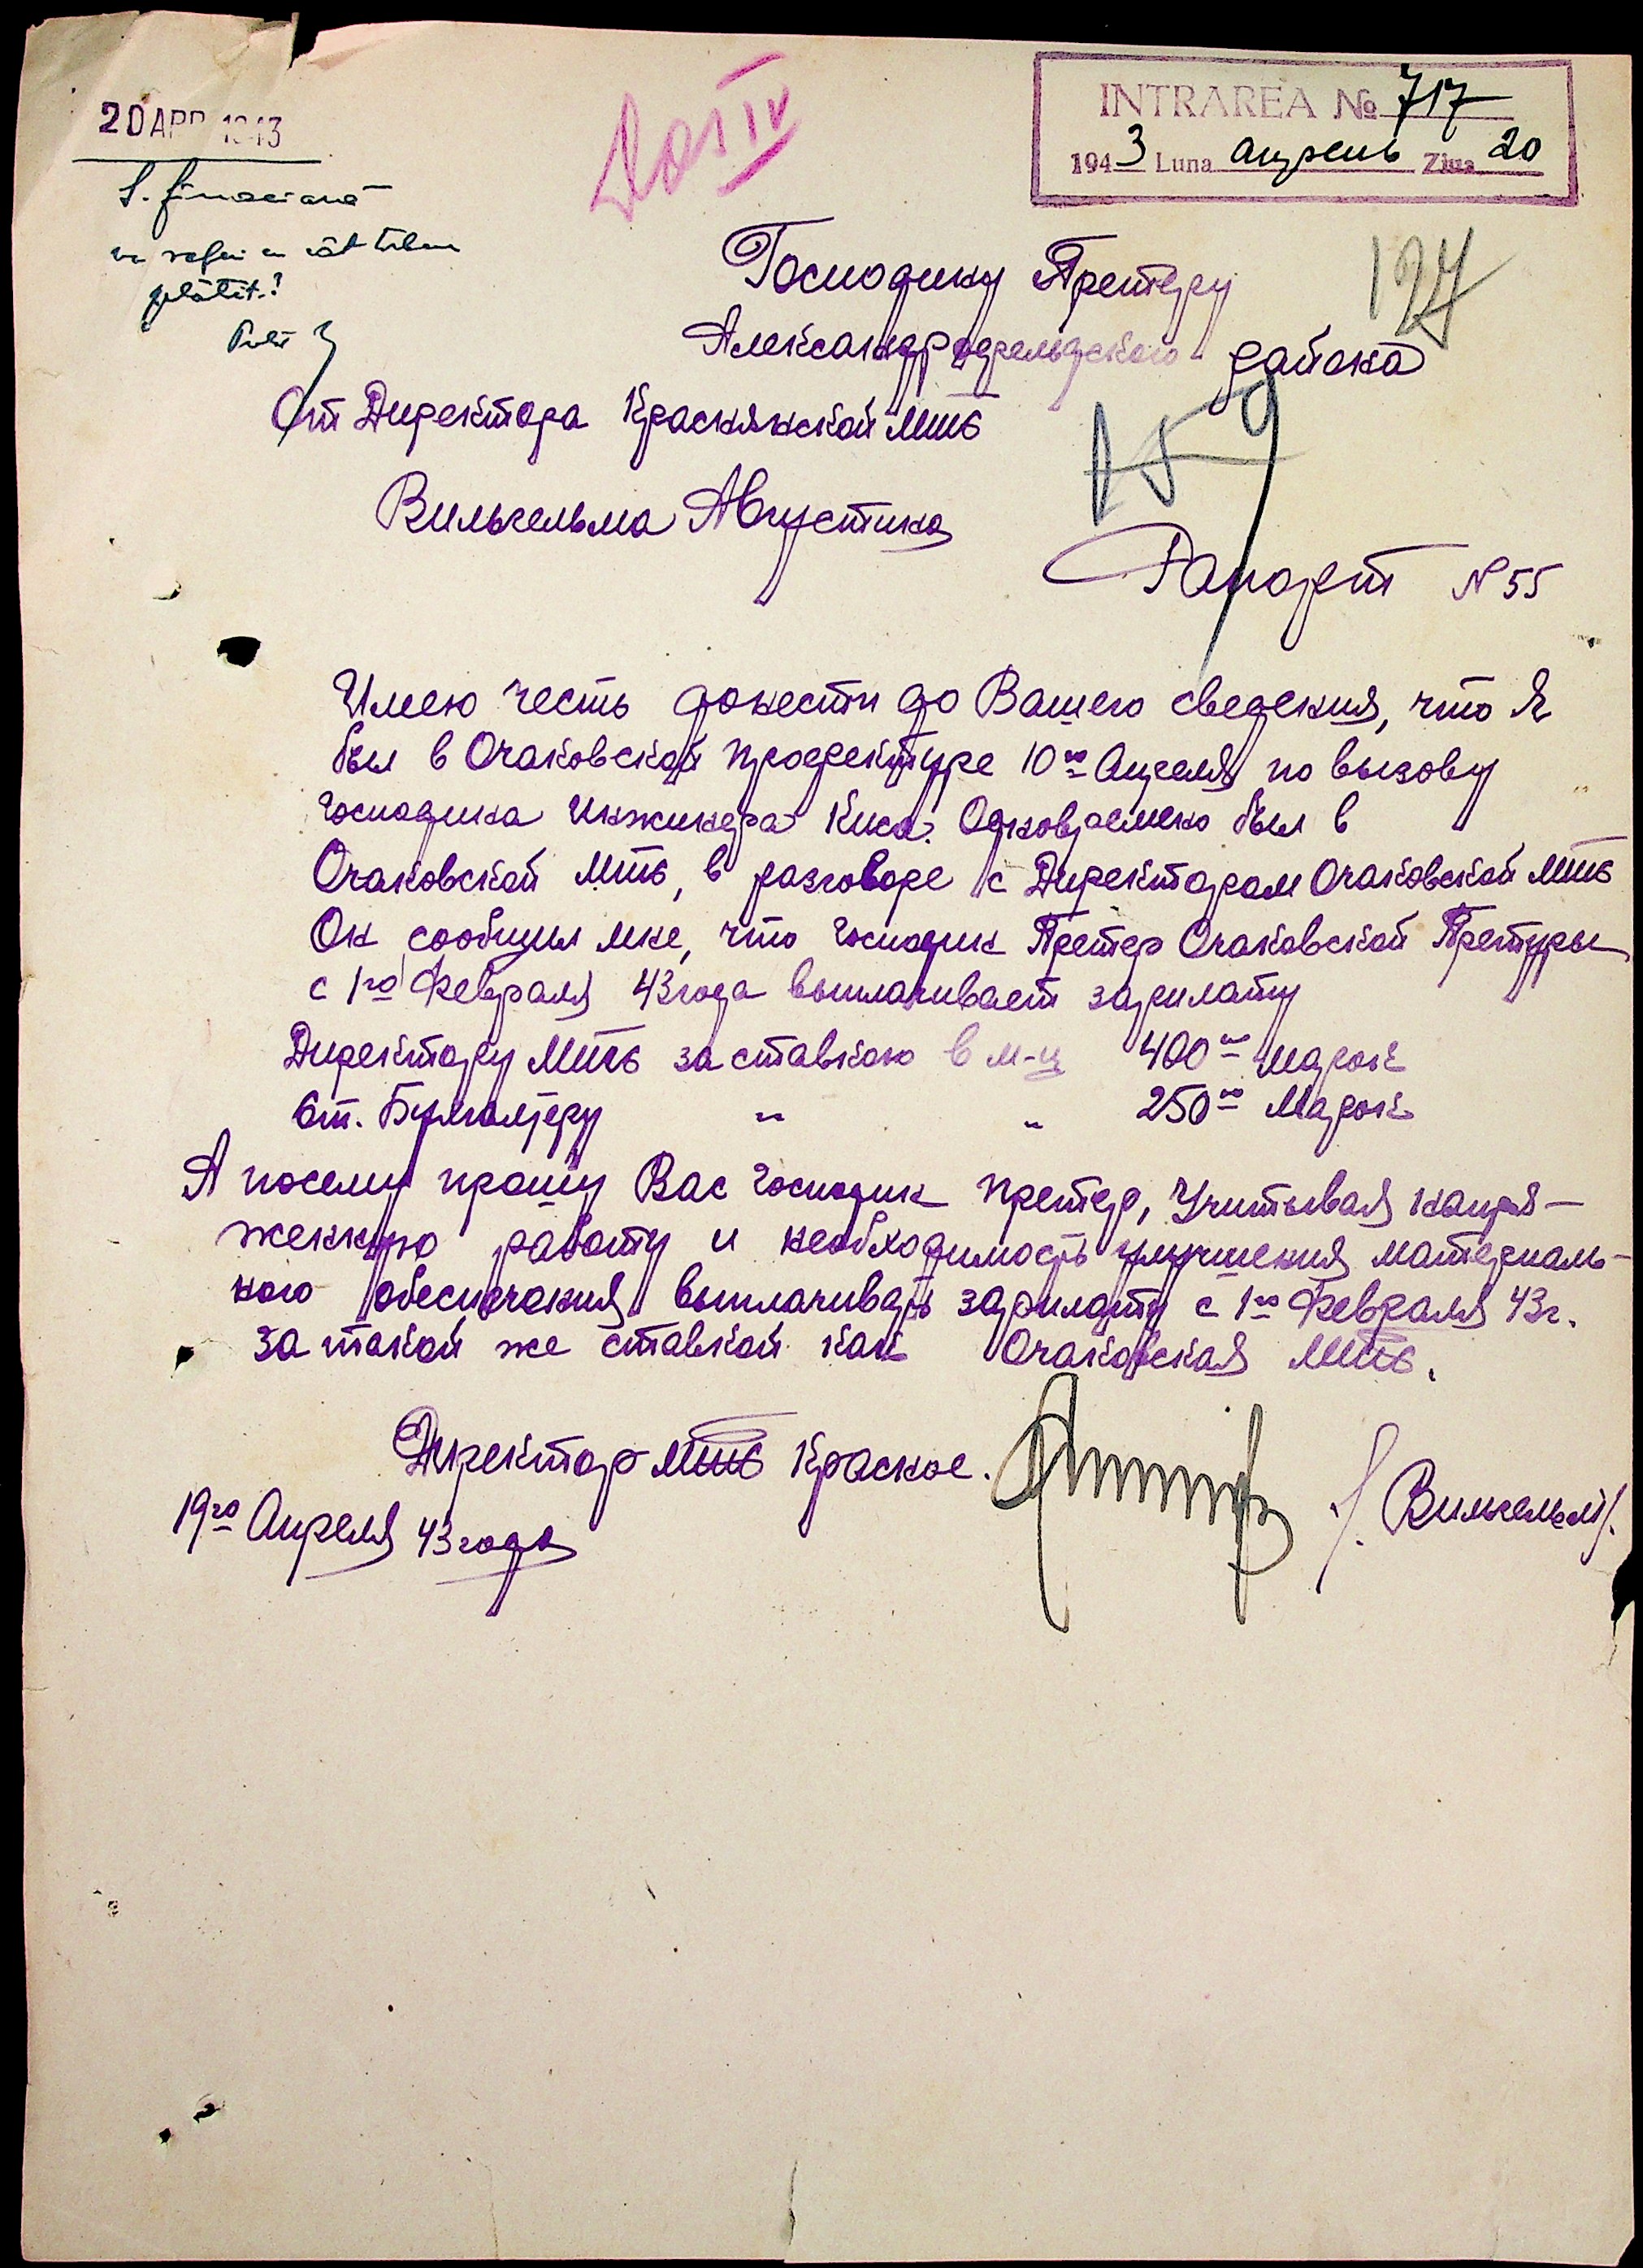 20 APR 1943
INTRAREA № 717
1943 Luna апрель Ziua 20
Dos IV
S. financiară
plătit?
127
Господину Претору
Александрфельдского района
От Директора Краснянской МТС
Вильгельма Августина
Рапорт N 55
Имею честь донести до Вашего сведения, что я
был в Очаковской Профектуре 10го Апреля по вызову
господина инжинера Киса. Одновремено был в
Очаковской МТС, в разговоре с Директором Очаковской МТС
Он сообщил мне, что господин Претор Очаковской Претуры
с 1го Февраля 43 года выплачивает зарплату
Директору МТС за ставкою в м-ц 400 оо марок
Ст. Бухгалтеру " " 250 оо Марок
А посему прошу Вас господин претор, Учитывая напря-
женную работу и необходимость улучшения материаль-
ного обеспечения выплачивать зарплату с 1го Февраля 43г.
за такой же ставкой как Очаковская МТС.
Директор МТС Красное. /. Вильгельм/.
19го Апреля 43 года